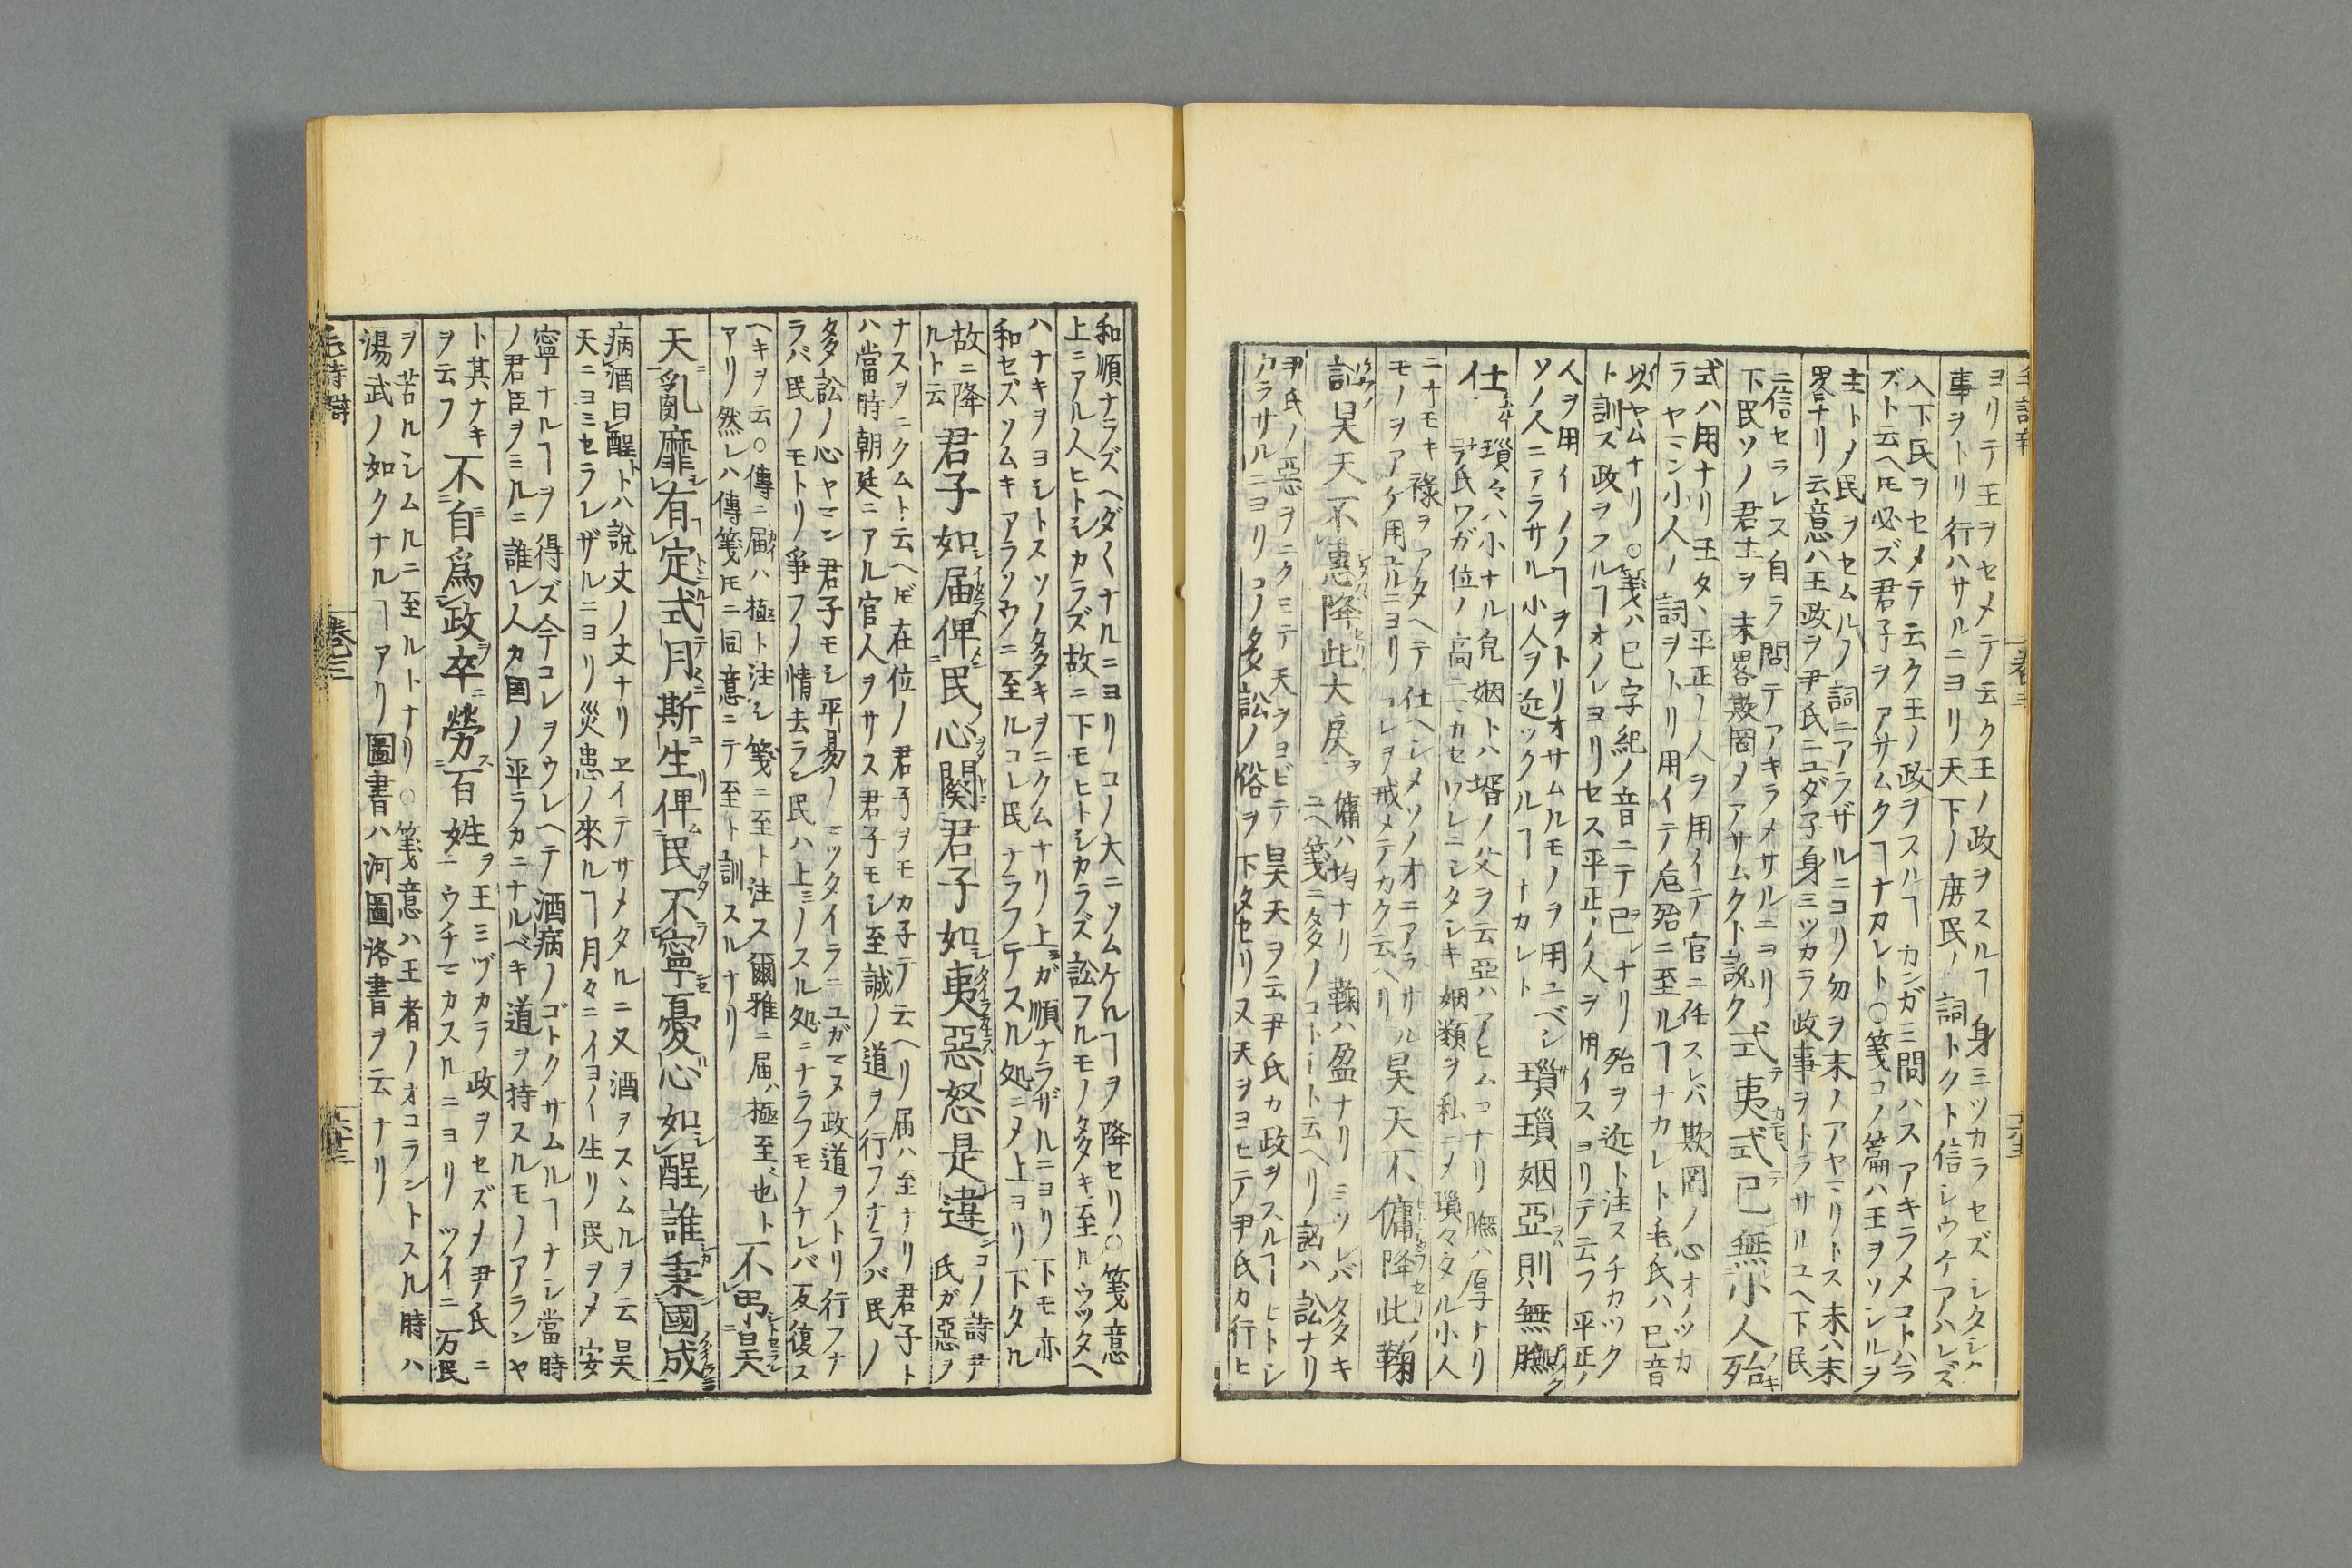 ヨリテ王ヲセメテ云ク王ノ政ヲスルヿ身ミツカラセズシタシク
事ヲトリ行ハサルニヨリ天下ノ庶民ノ詞トクト信シウケアハレズ
入下民ヲセメテ云ク王ノ政ヲスルヿカンガミ問ハスアキラメコトハラ
ズト云ヘ𪜈必ズ君子ヲアサムクヿナカレト○箋コノ篇ハ王ヲソシルヲ
主トメ民ヲセムルノ詞ニアラザルニヨリ勿ヲ末ノアヤマリトス末ハ末
畧ナリ云意ハ王政ヲ尹氏ニユダ子身ミツカラ政事ヲトラサルユヘ下民
ニ信セラレス自ラ問テアキラメサルニヨリ
下民ソノ君主ヲ末畧欺罔メアサムクト説ク
式夷式已無小人殆
式ハ用ナリ王タヽ平正ノ人ヲ用イテ官ニ任スレバ欺罔ノ心オノツカ
ラヤマン小人ノ詞ヲトリ用イテ危殆ニ至ルヿナカレト毛氏ハ已音
以ヤムナリ○箋ハ已字紀ノ音ニテ己レナリ殆ヲ近ト注スチカツク
ト訓ス政ヲスルヿオノレヨリセス平正ノ人ヲ用イスヨリテ云フ平正ノ
人ヲ用イソノヿヲトリオサムルモノヲ用ユベシ
ソノ人ニアラサル小人ヲ近ツクルヿナカレト
瑣瑣姻亞則無膴
仕
瑣々ハ小ナル皃姻トハ壻ノ父ヲ云亞ハアヒムコナリ膴ハ厚ナリ
尹氏ワガ位ノ高ニマカセワレニシタシキ姻類ヲ私ニメ瑣々タル小人
ニオモキ祿ヲアタヘテ仕ヘシメソノオニアラサル
モノヲアケ用ユルニヨリコレヲ戒メテカク云ヘリ
昊天不傭降此鞠
訩昊天不惠降此大戾
傭ハ均ナリ鞠ハ盈ナリミツレバタタキ
ユヘ箋ニ多ノコトヽト云ヘリ訩ハ訟ナリ
尹氏ノ惡ヲニクミテ天ヲヨビテ昊天ヲ云尹氏カ政ヲスルヿヒトシ
カラサルニヨリコノ多訟ノ俗ヲ下タセリ又天ヲヨヒテ尹氏カ行ヒ
和順ナラズヘダヽナルニヨリコノ大ニソムケルヿヲ降セリ○箋意
上ニアル人ヒトシカラズ故ニ下モヒトシカラズ訟フルモノ多キ至ルウツタヘ
ハナキヲヨシトスソノ多キヲニクムナリ上ミガ順ナラザルニヨリ下モ亦
和セズソムキアラソウニ至ルコレ民ナラフテスル処ニメ上ヨリ下タル
故ニ降
ルト云
君子如届俾民心闋君子如夷惡怒是違
コノ詩尹
氏ガ惡ヲ
ナスヲニクムト云ヘ𪜈在位ノ君子ヲモカ子テ云ヘリ届ハ至ナリ君子ト
ハ當時朝廷ニアル官人ヲサス君子モシ至誠ノ道ヲ行フナラバ民ノ
多訟ノ心ヤマン君子モシ平易ノミツタイラニユガマヌ政道ヲトリ行フナ
ラバ民ノモトリ爭フノ情去ラン民ハ上ミノスル処ニナラフモノナレバ反復ス
ヘキヲ云○傳ニ届ハ極ト注シ箋ニ至ト注ス爾雅ニ届ハ極至也ト
アリ然レハ傳箋𪜈ニ同意ニテ至ト訓スルナリ
不弔昊
天亂靡有定式月斯生俾民不寧憂心如酲誰秉國成
病酒曰酲トハ說文ノ文ナリヱイテサメタルニ又酒ヲスヽムルヲ云昊
天ニヨミセラレザルニヨリ災患ノ來ルヿ月々ニイヨ〱生リ民ヲメ安
寧ナルヿヲ得ズ今コレヲウレヘテ酒病ノゴトクサムルヿナシ當時
ノ君臣ヲミルニ誰レ人カ国ノ平ラカニナルベキ道ヲ持スルモノアランヤ
ト其ナキ
ヲ云フ
不自爲政卒勞百姓
ヲ王ミヅカラ政ヲセズメ尹氏ニ
ニウチマカスルニヨリツイニ万民
ヲ苦ルシムルニ至ルトナリ○箋意ハ王者ノオコラントスル時ハ
湯武ノ如クナルヿアリ圖書ハ河圖洛書ヲ云ナリ
毛詩辯
卷三